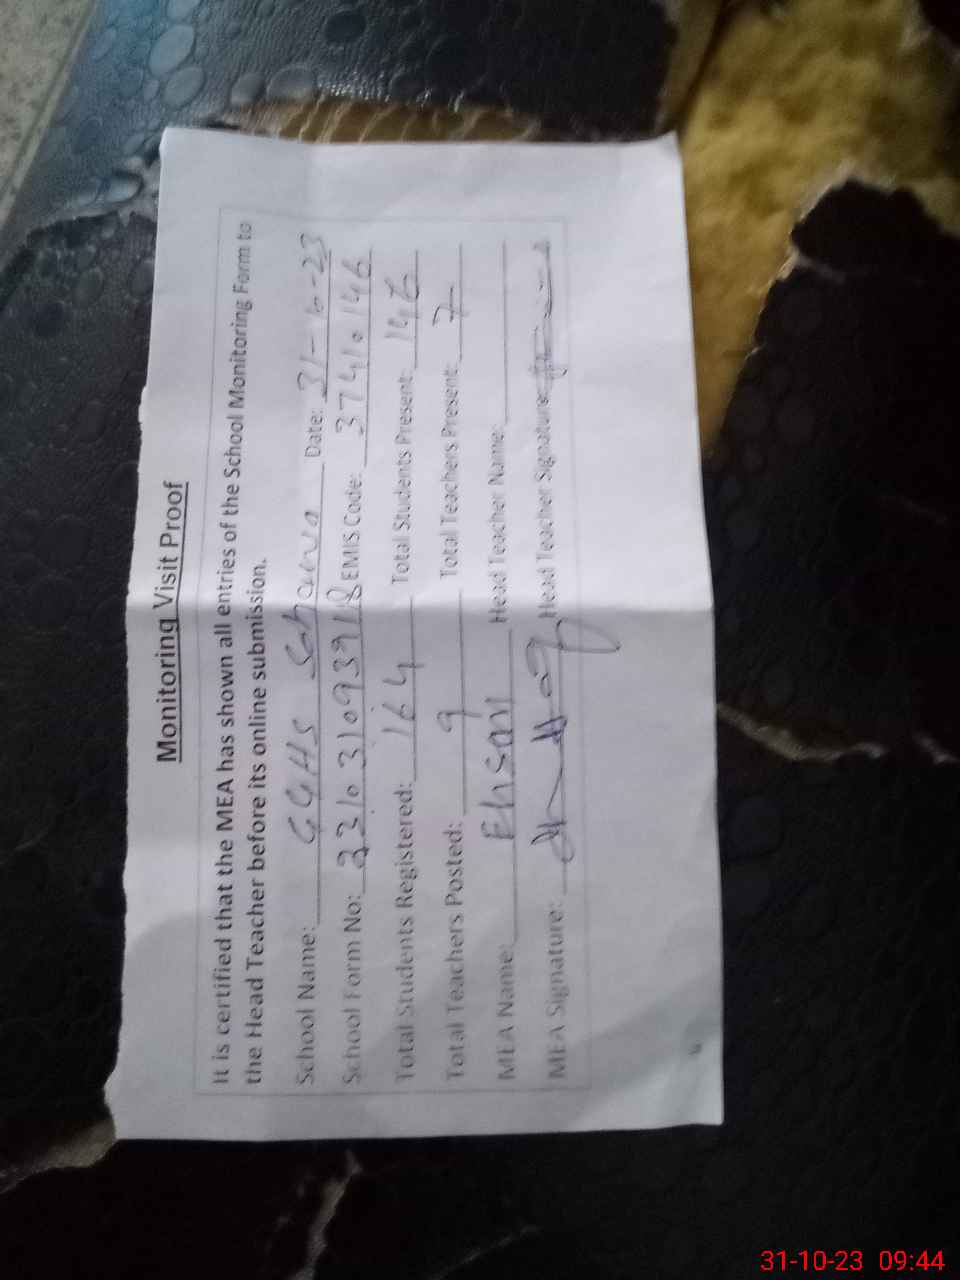 Monitoring Visit Proof
It is certified that the MEA has shown all entries of the School Monitoring Form to
the Head Teacher before its online submission.
School Name: GGHS Sehana Date: 31-10-23
School Form No: 331031093918 EMIS Code: 37410146
Total Students Registered: 164 Total Students Present: 146
Total Teachers Posted: 9 Total Teachers Present: 7
MEA Name: Ehsan Head Teacher Name:
MEA Signature: Head Teacher Signature:
31-10-23 09:44